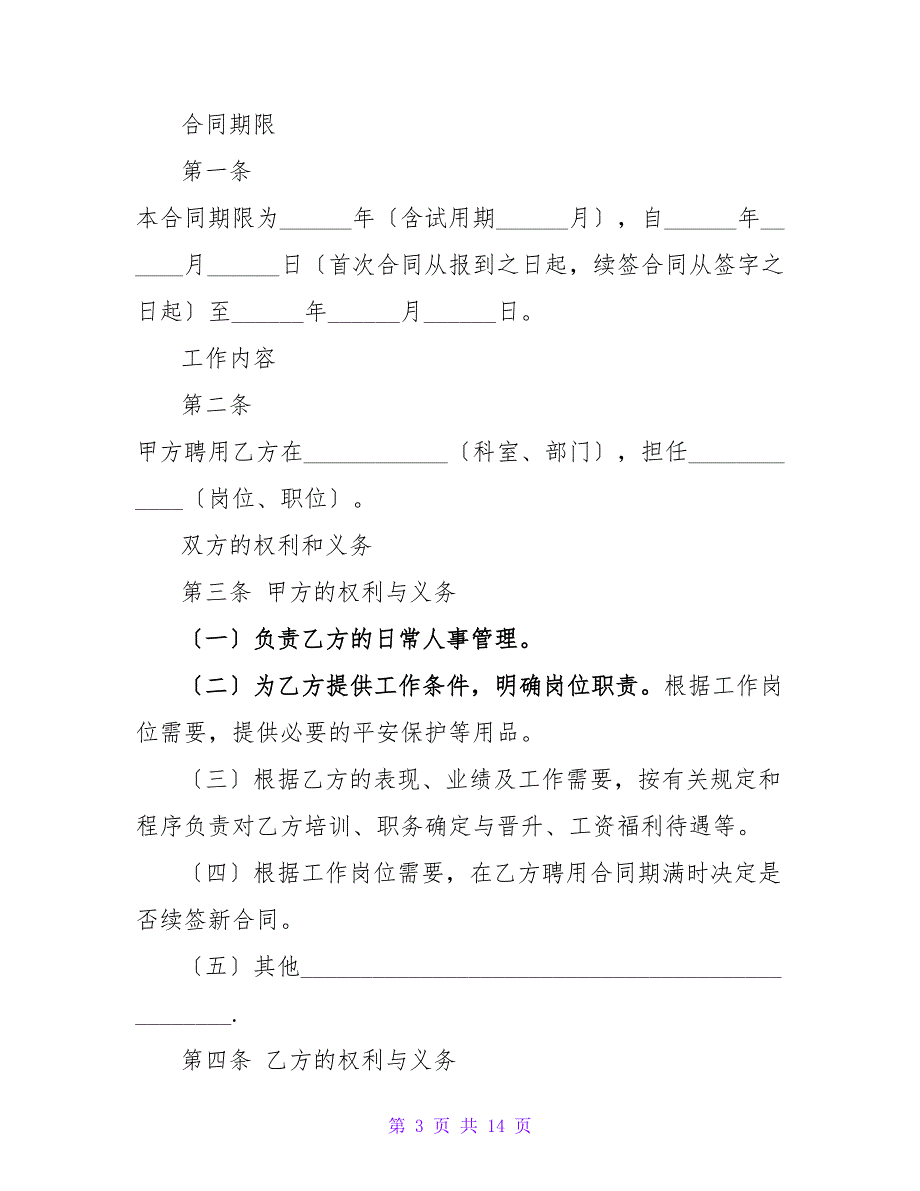 合同期限
第一条
本合同期限为______年〔含试用期______月〕，自______年__
____月______日〔首次合同从报到之日起，续签合同从签字之
日起〕至______年______月______日。
工作内容
第二条
甲方聘用乙方在____________〔科室、部门〕，担任________
____〔岗位、职位〕。
双方的权利和义务
第三条 甲方的权利与义务
〔一〕负责乙方的日常人事管理。
〔二〕为乙方提供工作条件，明确岗位职责。根据工作岗
位需要，提供必要的平安保护等用品。
〔三〕根据乙方的表现、业绩及工作需要，按有关规定和
程序负责对乙方培训、职务确定与晋升、工资福利待遇等。
〔四〕根据工作岗位需要，在乙方聘用合同期满时决定是
否续签新合同。
〔五〕其他________________________________________
________.
第四条 乙方的权利与义务
第 3 页 共 14 页